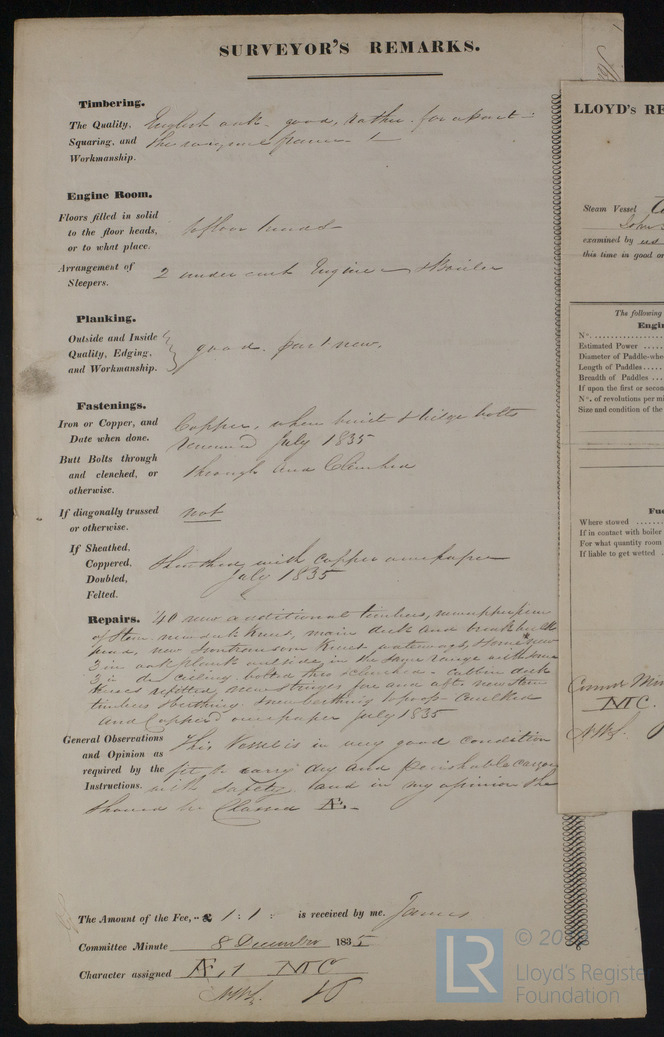 SURVEYOR'S REMARKS.
Timbering.
The Quality, Squaring, and Workmanship.
English oak. good, rather far apart
the
Engine Room.
Floors filled in solid to the floor heads, or to what place.
to floor heads
Arrangement of Sleepers.
2 under each Engine & Boiler
Planking.
Outside and Inside Quality, Edging, and Workmanship.
good. part new.
Fastenings.
Iron or Copper, and Date when done.
Copper, when built & bolts
renewed July 1835
Butt Bolts through and clenched, or otherwise.
through and Clenched
If diagonally trussed or otherwise.
not
If Sheathed, Coppered, Doubled, Felted.
Sheathed with copper over paper
July 1835
Repairs. 40 new additional timbers, new upper piece
of Stem. new deck knees, main deck and
head, new transom knees, waterways, & some new
3 in oak plank outside, in the same range with some
3 in do ceiling bolted thro & clenched - cabin deck
knees refitted, new fore and aft. new stern
timbers & berthing. new berthing to poop. caulked
and Copper'd over paper July 1835
General Observations and Opinion as required by the Instructions.
This Vessel is in very good condition
fit to carry dry and perishable cargoes
with safety, and in my opinion she
should be Classed Æ.
The Amount of the Fee, .. £ 1 : 1 : is received by me. James
Committee Minute 8 December 1835
Character assigned Æ, 1 MC
LLOYD's RE
Steam Vessel
John
examined by us
this time in good or
The following
Engi
Nº.
Estimated Power ......
Diameter of Paddle-whe
Length of Paddles.....
Breadth of Paddles ...
If upon the first or secon
Nº. of revolutions per mi
Size and condition of the
Fue
Where stowed .......
If in contact with boiler
For what quantity room
If liable to get wetted .
MC
LR
© 20
Lloyd's Register
Foundation